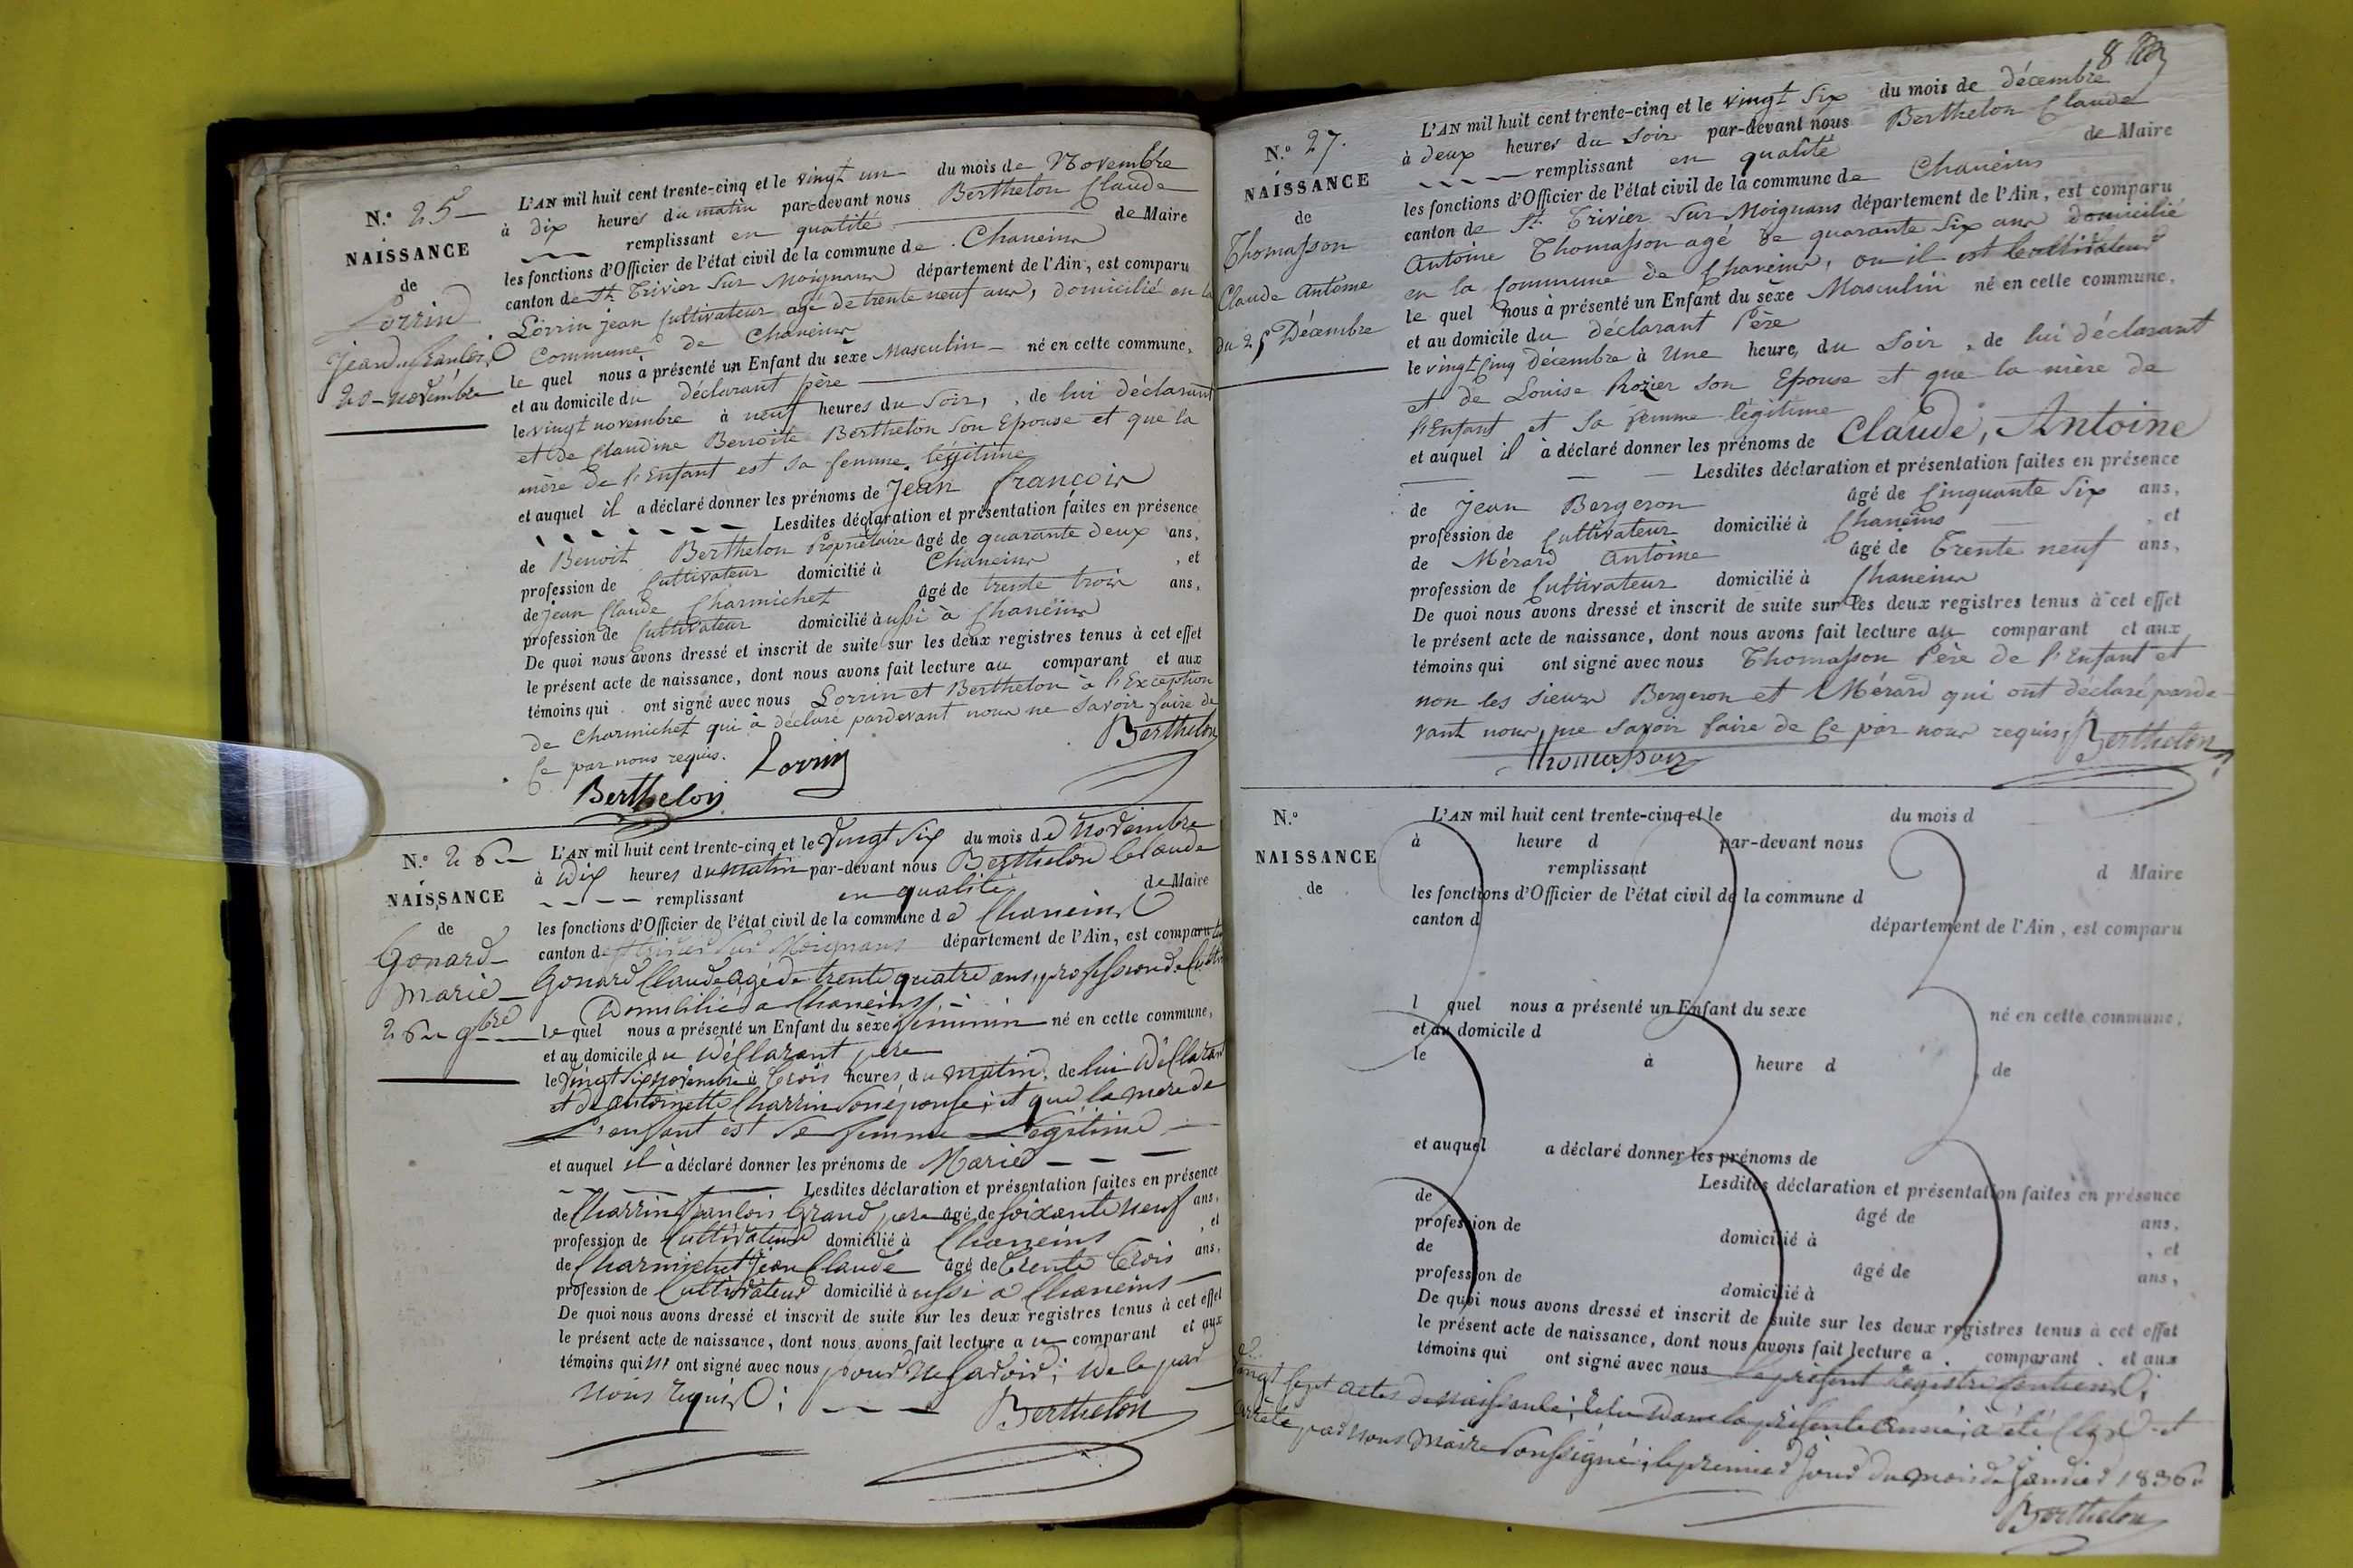 N.° 25
NAISSANCE
de
Lorrin
Jean François
20 novembre
L'AN mil huit cent trente-cinq et le vingt un du mois de Novembre
à dix heures du matin par-devant nous Berthelon Claude
remplissant en qualité de Maire
les fonctions d'Officier de l'état civil de la commune de Chaneins
canton de St Trivier Sur Moignans département de l'Ain, est comparu
Lorrin jean Cultivateur agé de trente neuf ans, domicilié en la
Commune de Chaneins
le quel nous à présenté un Enfant du sèxe Masculin né en cette commune,
et au domicile du déclarant père
le vingt novembre à neuf heures du Soir, de lui déclarant
et de Claudine Benoite Berthelon Son Epouse et que la
mère de l'Enfant est sa femme légitime
et auquel il a déclaré donner les prénoms de Jean françois
Lesdites déclaration et présentation faites en présence
de Benoit Berthelon Propriétaire âgé de quarante deux ans,
profession de Cultivateur domicilié à Chaneins , et
de Jean Claude Charmichet âgé de trente trois ans,
profession de Cultivateur domicilié à ussi à Chaneins
De quoi nous avons dressé et inscrit de suite sur les deux registres tenus à cet effet
le présent acte de naissance, dont nous avons fait lecture au comparant et aux
témoins qui ont signé avec nous Lorrin et Berthelon à l'Exception
de Charmichet qui à déclaré pardevant nous ne Savoir faire de
Ce par nous requis. Lorrin Berthelon
Berthelon
N.° 26
NAISSANCE
de
Gonard
Marie
26 9bre
L'AN mil huit cent trente-cinq et le Vingt Six du mois de Novembre
à Dix heures du matin par-devant nous Berthelon Claude
remplissant en qualité de Maire
les fonctions d'Officier de l'état civil de la commune de Chaneins
canton de St trivier sur Moignans département de l'Ain, est comparu
Gonard Claude agé de trente quatre ans, profession de Cultiv
Domicilié a Chaneins
le quel nous a présenté un Enfant du sèxe féminin né en cette commune,
et au domicile du Déclarant pere
le Vingt Six novembre à trois heures du matin, de lui Déclarant
et de antoinette Charrin Son épouse; et que la mere de
L'enfant est Sa femme Légitime
et auquel il à déclaré donner les prénoms de Marie
Lesdites déclaration et présentation faites en présence
de Charrin françois Grand pere âgé de soixante neuf ans,
profession de Cultivateur domicilié à Chaneins , et
de Charmichet Jean Claude âgé de trente trois ans,
profession de Cultivateur domicilié à ussi a Chaneins
De quoi nous avons dressé et inscrit de suite sur les deux registres tenus à cet effet
le présent acte de naissance, dont nous avons fait lecture a u comparant et aux
témoins qui n' ont signé avec nous pour ne Savoir; de ce par
nous requis;
Berthelon
8
N.° 27.
NAISSANCE
de
Thomasson
Claude Antoine
du 25 Décembre
L'AN mil huit cent trente-cinq et le vingt Six du mois de décembre
à deux heures du Soir par-devant nous Berthelon Claude
remplissant en qualité de Maire
les fonctions d'Officier de l'état civil de la commune de Chaneins
canton de St Trivier Sur Moignans département de l'Ain, est comparu
Antoine Thomasson agé de quarante Six ans domicilié
en la Commune de Chaneins, ou il est Cultivateur
le quel nous à présenté un Enfant du sèxe Masculin né en cette commune,
et au domicile du déclarant Père
le vingt Cinq décembre à Une heure, du Soir, de lui déclarant
et de Louise Rozier Son Epouse et que la mère de
l'Enfant et Sa femme légitime
et auquel il à déclaré donner les prénoms de Claude, Antoine
Lesdites déclaration et présentation faites en présence
de Jean Bergeron âgé de Cinquante Six ans,
profession de Cultivateur domicilié à Chaneins , et
de Mérard Antoine âgé de Trente neuf ans,
profession de Cultivateur domicilié à Chaneins
De quoi nous avons dressé et inscrit de suite sur les deux registres tenus à cet effet
le présent acte de naissance, dont nous avons fait lecture au comparant et aux
témoins qui ont signé avec nous Thomasson Père de l'Enfant et
non les Sieurs Bergeron et Mérard qui ont déclaré parde-
vant nous, ne savoir faire de Ce par nous requis. Berthelon
Thomasson
N.°
NAISSANCE
de
L'AN mil huit cent trente-cinq et le du mois d
à heure d par-devant nous
remplissant d Maire
les fonctions d'Officier de l'état civil de la commune d
canton d département de l'Ain, est comparu
l quel nous a présenté un Enfant du sexe né en cette commune,
et au domicile d
le à heure d , de
et auquel a déclaré donner les prénoms de
Lesdites déclaration et présentation faites en présence
de âgé de ans,
profession de domicilié à , et
de âgé de ans,
profession de domicilié à
De quoi nous avons dressé et inscrit de suite sur les deux registres tenus à cet effet
le présent acte de naissance, dont nous avons fait lecture a comparant et aux
témoins qui ont signé avec nous le présent Registre Contenant
Vingt Sept actes de naissance; dans la présente année; à été Clos et
arrêté, par nous Maire Soussigné; le premier jour du mois de Janvier 1836
Berthelon